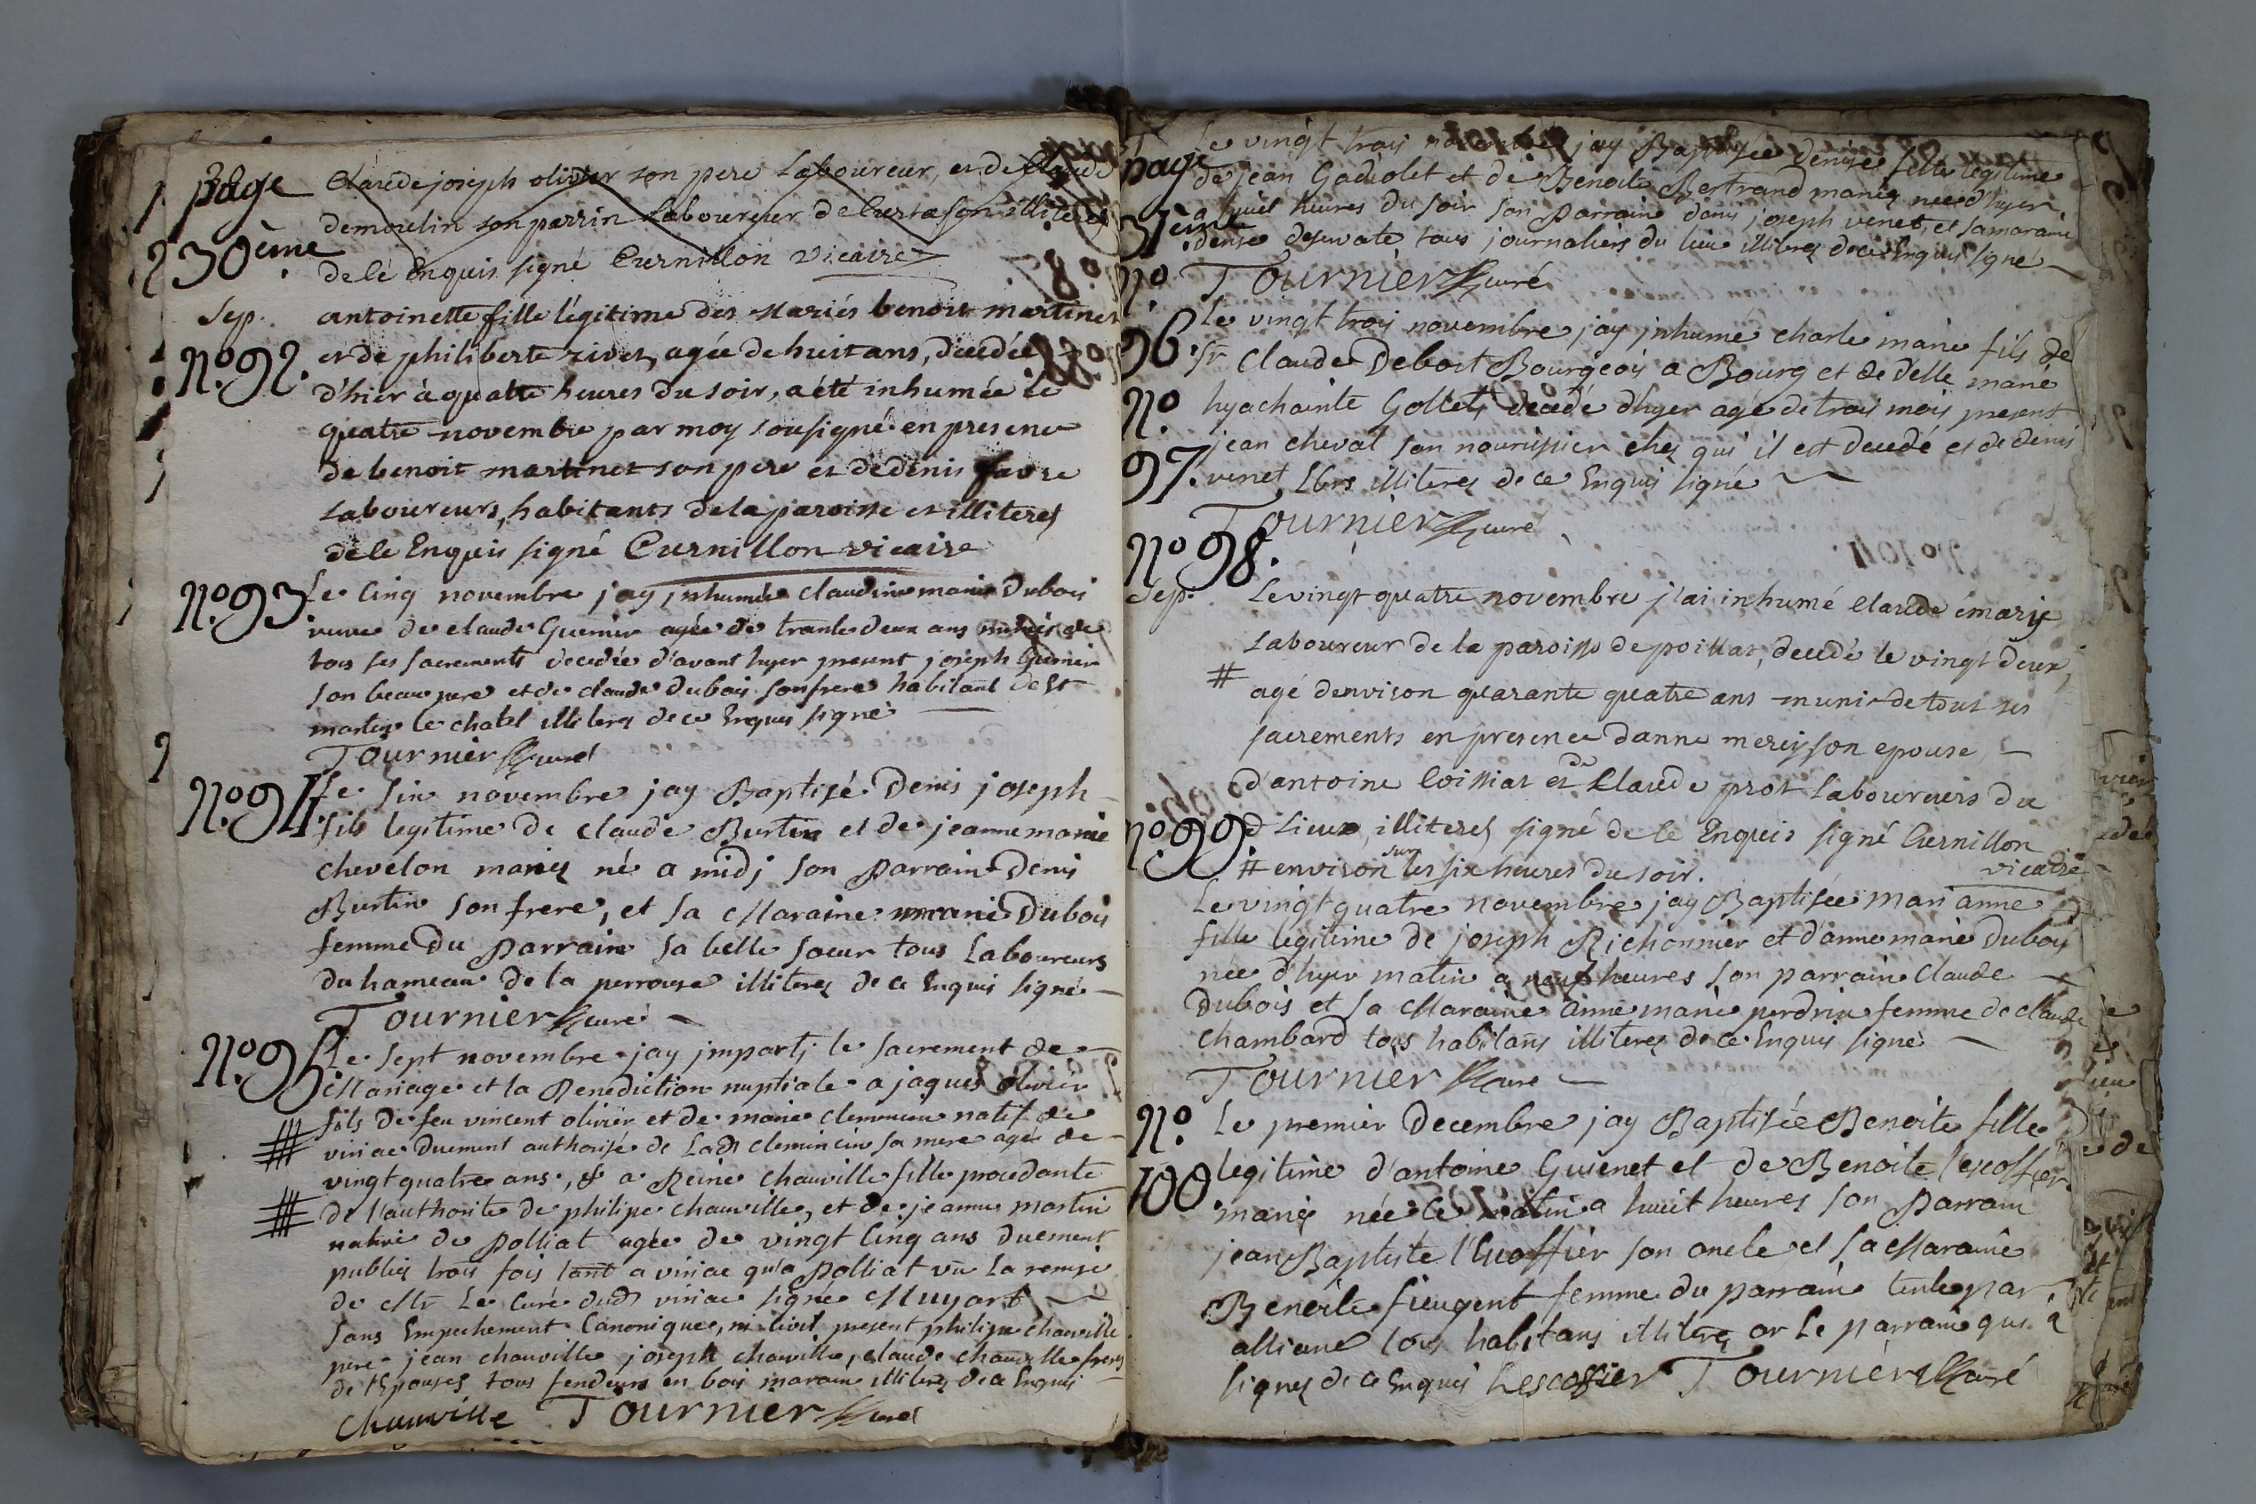 page
30ème
Claude joseph olivier son pere Laboureur, et de Claude
demoulin son parrin Laboureur de Curtafon illiteres
de lé Enquis signé Curnillon vicaire
Sep.
n.º 92.
antoinette fille légitime des Mariés benoit martinet
et de philiberte rivet, agée de huit ans, decedée
d'hier à quatre heures du soir, a été inhumée le
quatre novembre par moy sousigné en presence
de benoit martinet son pere et de denis favre
Laboureurs, habitants de la paroisse et illiteres
de le Enquis signé Curnillon vicaire
n.º 93.
Le Cinq novembre jay inhumée claudine marie Dubois
veuve de claude Guerrier agée de trante deux ans munie de
tous ses sacrements decedée d'avant hyer present joseph Guerrier
son beau pere et de claude dubois son frere habitant de St
martin le chatel illiteres de ce Enquis signé
Tournier Curé
n.º 94.
Le six novembre jay Baptisé Denis joseph
fils legitime de claude Burtin et de jeanne marie
chevelon mariez né a midj son Parrain Denis
Burtin son frere, et sa Maraine marie Dubois
femme du Parrain sa belle soeur tous Laboureurs
du hameau de la perrouse illiteres de ce Enquis signé
Tournier Curé
n.º 95.
Le sept novembre jay jmpartj le sacrement de
Mariage et la Benediction nuptiale a jaques olivier
fils de feu vincent olivier et de marie clemencin natif de
viriac Duement authorisé de Ladt clemincin sa mere agé de
vingt quatre ans, & a Reine chauville fille procedante
de l'authorite de philipe chauville, et de jeanne martin
native de Polliat agée de vingt Cinq ans duement
publiez trois fois tant a viriac qu'a Polliat vû la remise
de Mr Le Curé dudt viriac signé Muyart
sans Empechement Canonique, ni civil present philipe chauville
pere jean chauville joseph chauville, claude chauville freres
de l'Epouse tous fendeurs en bois illiteres de ce Enquis
Chauville Tournier Curé
page
31ème
nº
96.
Le vingt trois novembre jay Baptisée denise fille legitime
de jean Gadiolet et de Benoite Bertrand mariez née d'hyer
a huit heures du soir son Parrain denis joseph venet, et sa maraine
denise tous journaliers du lieu illiteres de ce Enquis signé
Tournier Curé
nº
97.
Le vingt trois novembre jay jnhumé charle marie fils de
Sr Claude Debost Bourgeois a Bourg et de Delle marie
hyachainte Gollety decedé d'hyer agé de trois mois present
jean cheval son nourissier chez qui il est decedé et de denis
venet Lbrs illiteres de ce Enquis signé
Tournier Curé
nº 98.
Sep.
Le vingt quatre novembre j'ai inhumé Claude émary
Laboureur de la paroisse de poillat, decedé le vingt deux,
# agé denvison quarante quatre ans muni de tous ses
sacrements en presence d'anne mercy son epouse
d'antoine Loissiat et de Claude prost Laboureurs du
d Lieux, illiteres signé de le Enquis signé Curnillon
vicaire
# environ sur les six heures du soir.
nº 99.
Le vingt quatre novembre jay Baptisée marianne
fille legitime de joseph Richonnier et d'anne marie Dubois
née d'hyer matin a neuf heures son parrain claude
Dubois et sa Maraine anne marie perdrix femme de claude
chambard tous habitans illiteres de ce Enquis signé
Tournier Curé
nº
100
Le premier Decembre jay Baptisée Benoite fille
legitime d'antoine Guienet et de Benoite l'escoffier
mariez née ce matin a huit heures son Parrain
jean Baptiste l'Escoffier son oncle et sa Maraine
Benoite fieugent femme du parrain tante par
alliance tous habitans illiteres or le parrain qui a
signez de ce Enquis Lescofier Tournier Curé